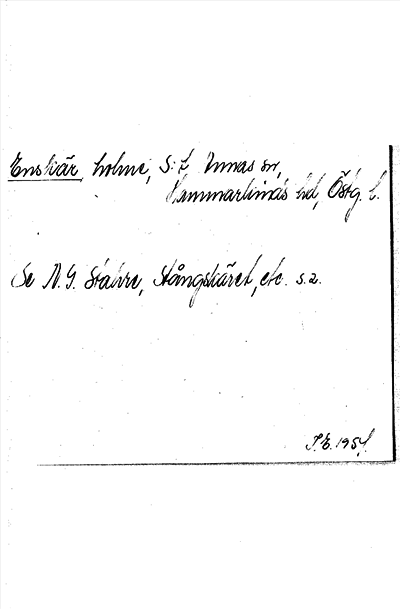 Enskär, holme, S:t Annas sn,
Hammarkinds hd, Östg. l.
Se N. G. Stahre, Stångskäret, etc. s. 2.
1954.